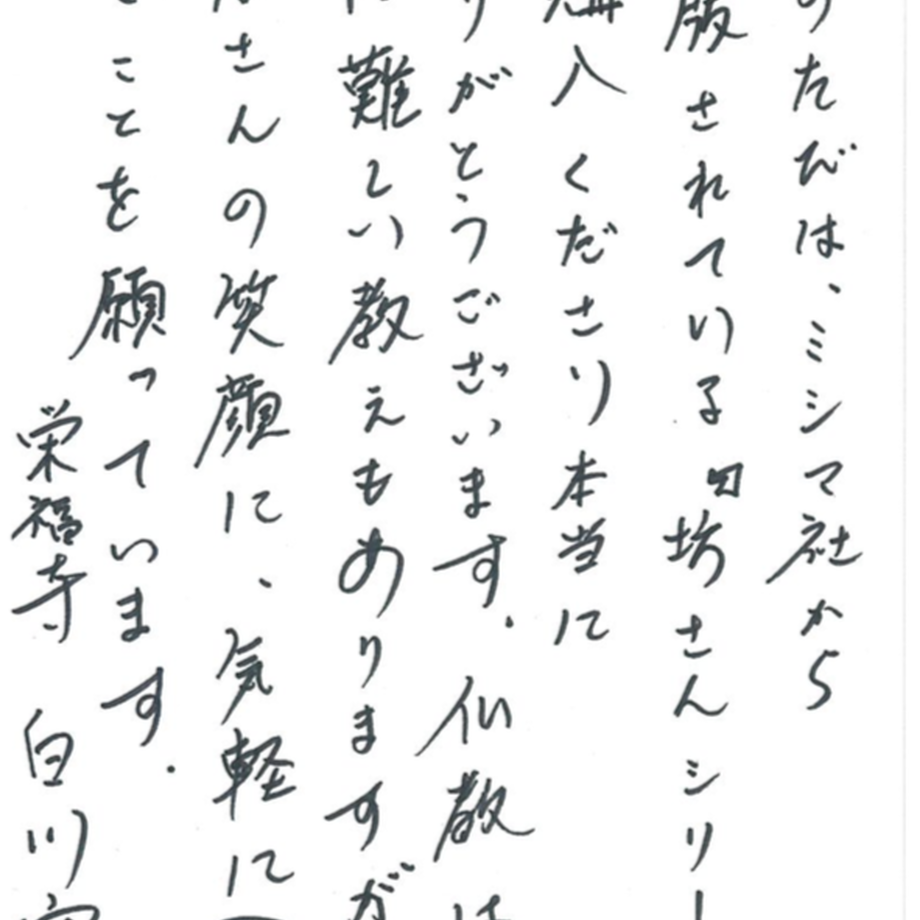 のたびは、ミシマ社から
版されている 坊さんシリー
購入くださり本当に
りがとうございます。仏教は
に難しい教えもありますが
さんの笑顔に、気軽に
ことを願っています。
栄福寺 白川密